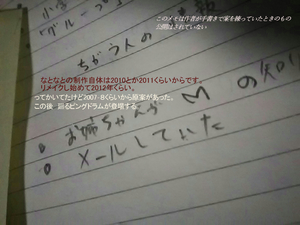 このメモは作者が手書きで案を練っていたときのもの
公開はされていない
ちがう人の
なとなとの制作自体は2010とか2011くらいからです。
リメイクし始めて2012年くらい。
ってかいてたけど2007-8くらいから原案があった。
この後 踊るピングドラムが登場する
お姉ちゃんが M の知り
メールしていた